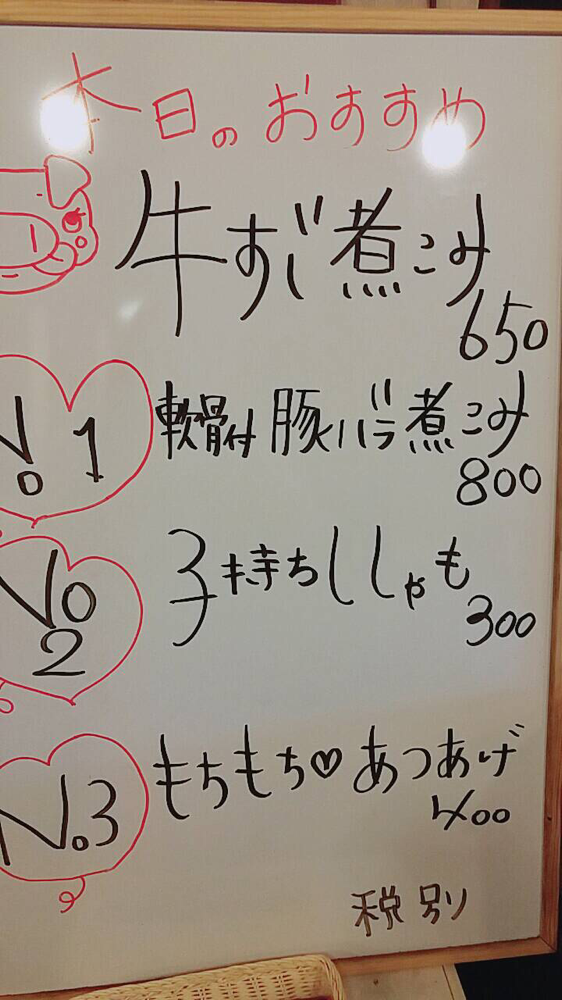 本日のおすすめ
牛すじ煮こみ
650
No.1 軟骨付豚バラ煮こみ
800
No.2 子持ちししゃも
300
No.3 もちもち♡あつあげ
400
税別